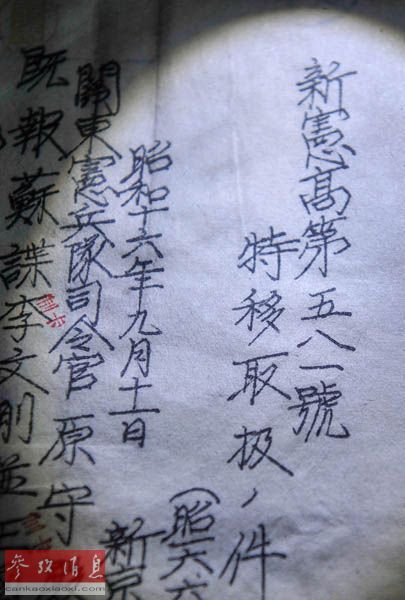 新憲高第五八一號
特移取扱ノ件
(昭六六
昭和十六年九月十一日
新京
關東憲兵隊司令官原守
既報蘇諜李文剛並
参政消息
cankaoxiaoxi.com